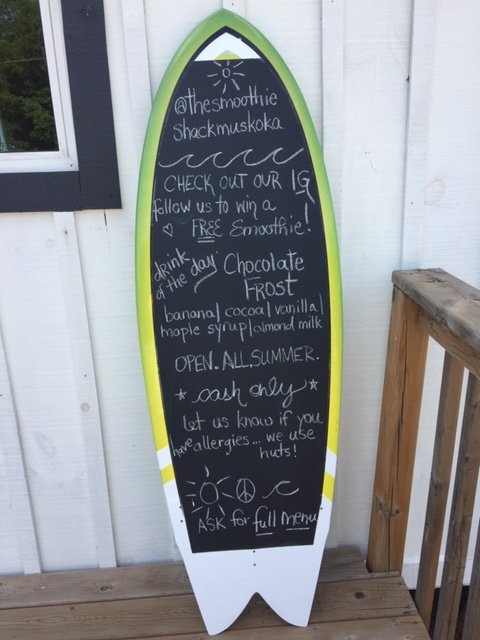 @thesmoothie
shackmuskoka
CHECK OUT OUR IG
follow us to win a
♡ FREE Smoothie!
drink
of the day
Chocolate
FROST
banana/cocoa/vanilla/
maple syrup/almond milk
OPEN.ALL.SUMMER.
* cash only *
let us know if you
have allergies... we use
nuts!
ASK for full menu